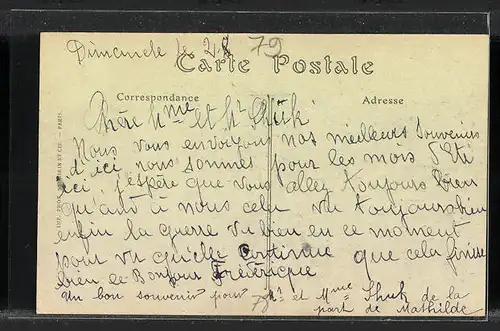 Dimanche le 28
79
Carte Postale
Correspondance
Adresse
Chère Mme et Mr Shük
Nous vous envoyons nos meilleurs souvenirs
d'ici nous sommes pour les mois d'Eté
ici, j'espère que vous allez toujours bien
qu'ant à nous cela va toujours bien
enfin la guerre va bien en ce moment
pour vu qu'elle continue que cela finisse
bien le Bonjour Frédérique
Un bon souvenir pour Mr et Mme Shuk de la
part de Mathilde
79